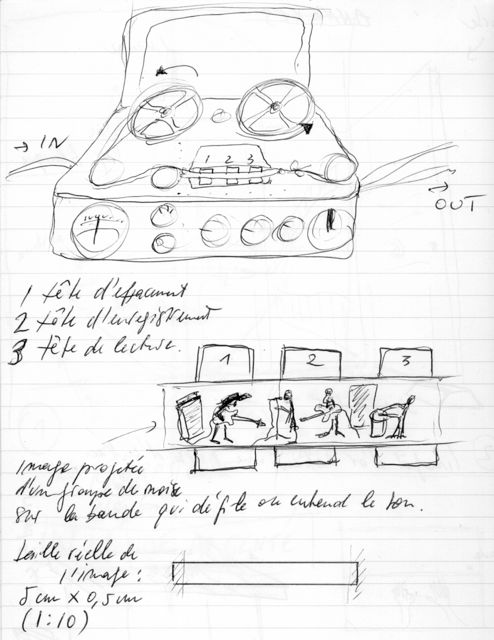 → IN
1 2 3
→ OUT
1 tête d'effacement
2 tête d'enregistrement
3 tête de lecture.
1 2 3
Image projetée
d'un groupe de
sur la bande qui défile on entend le son.
taille réelle de
l'image :
5 cm x 0,5 cm
(1:10)